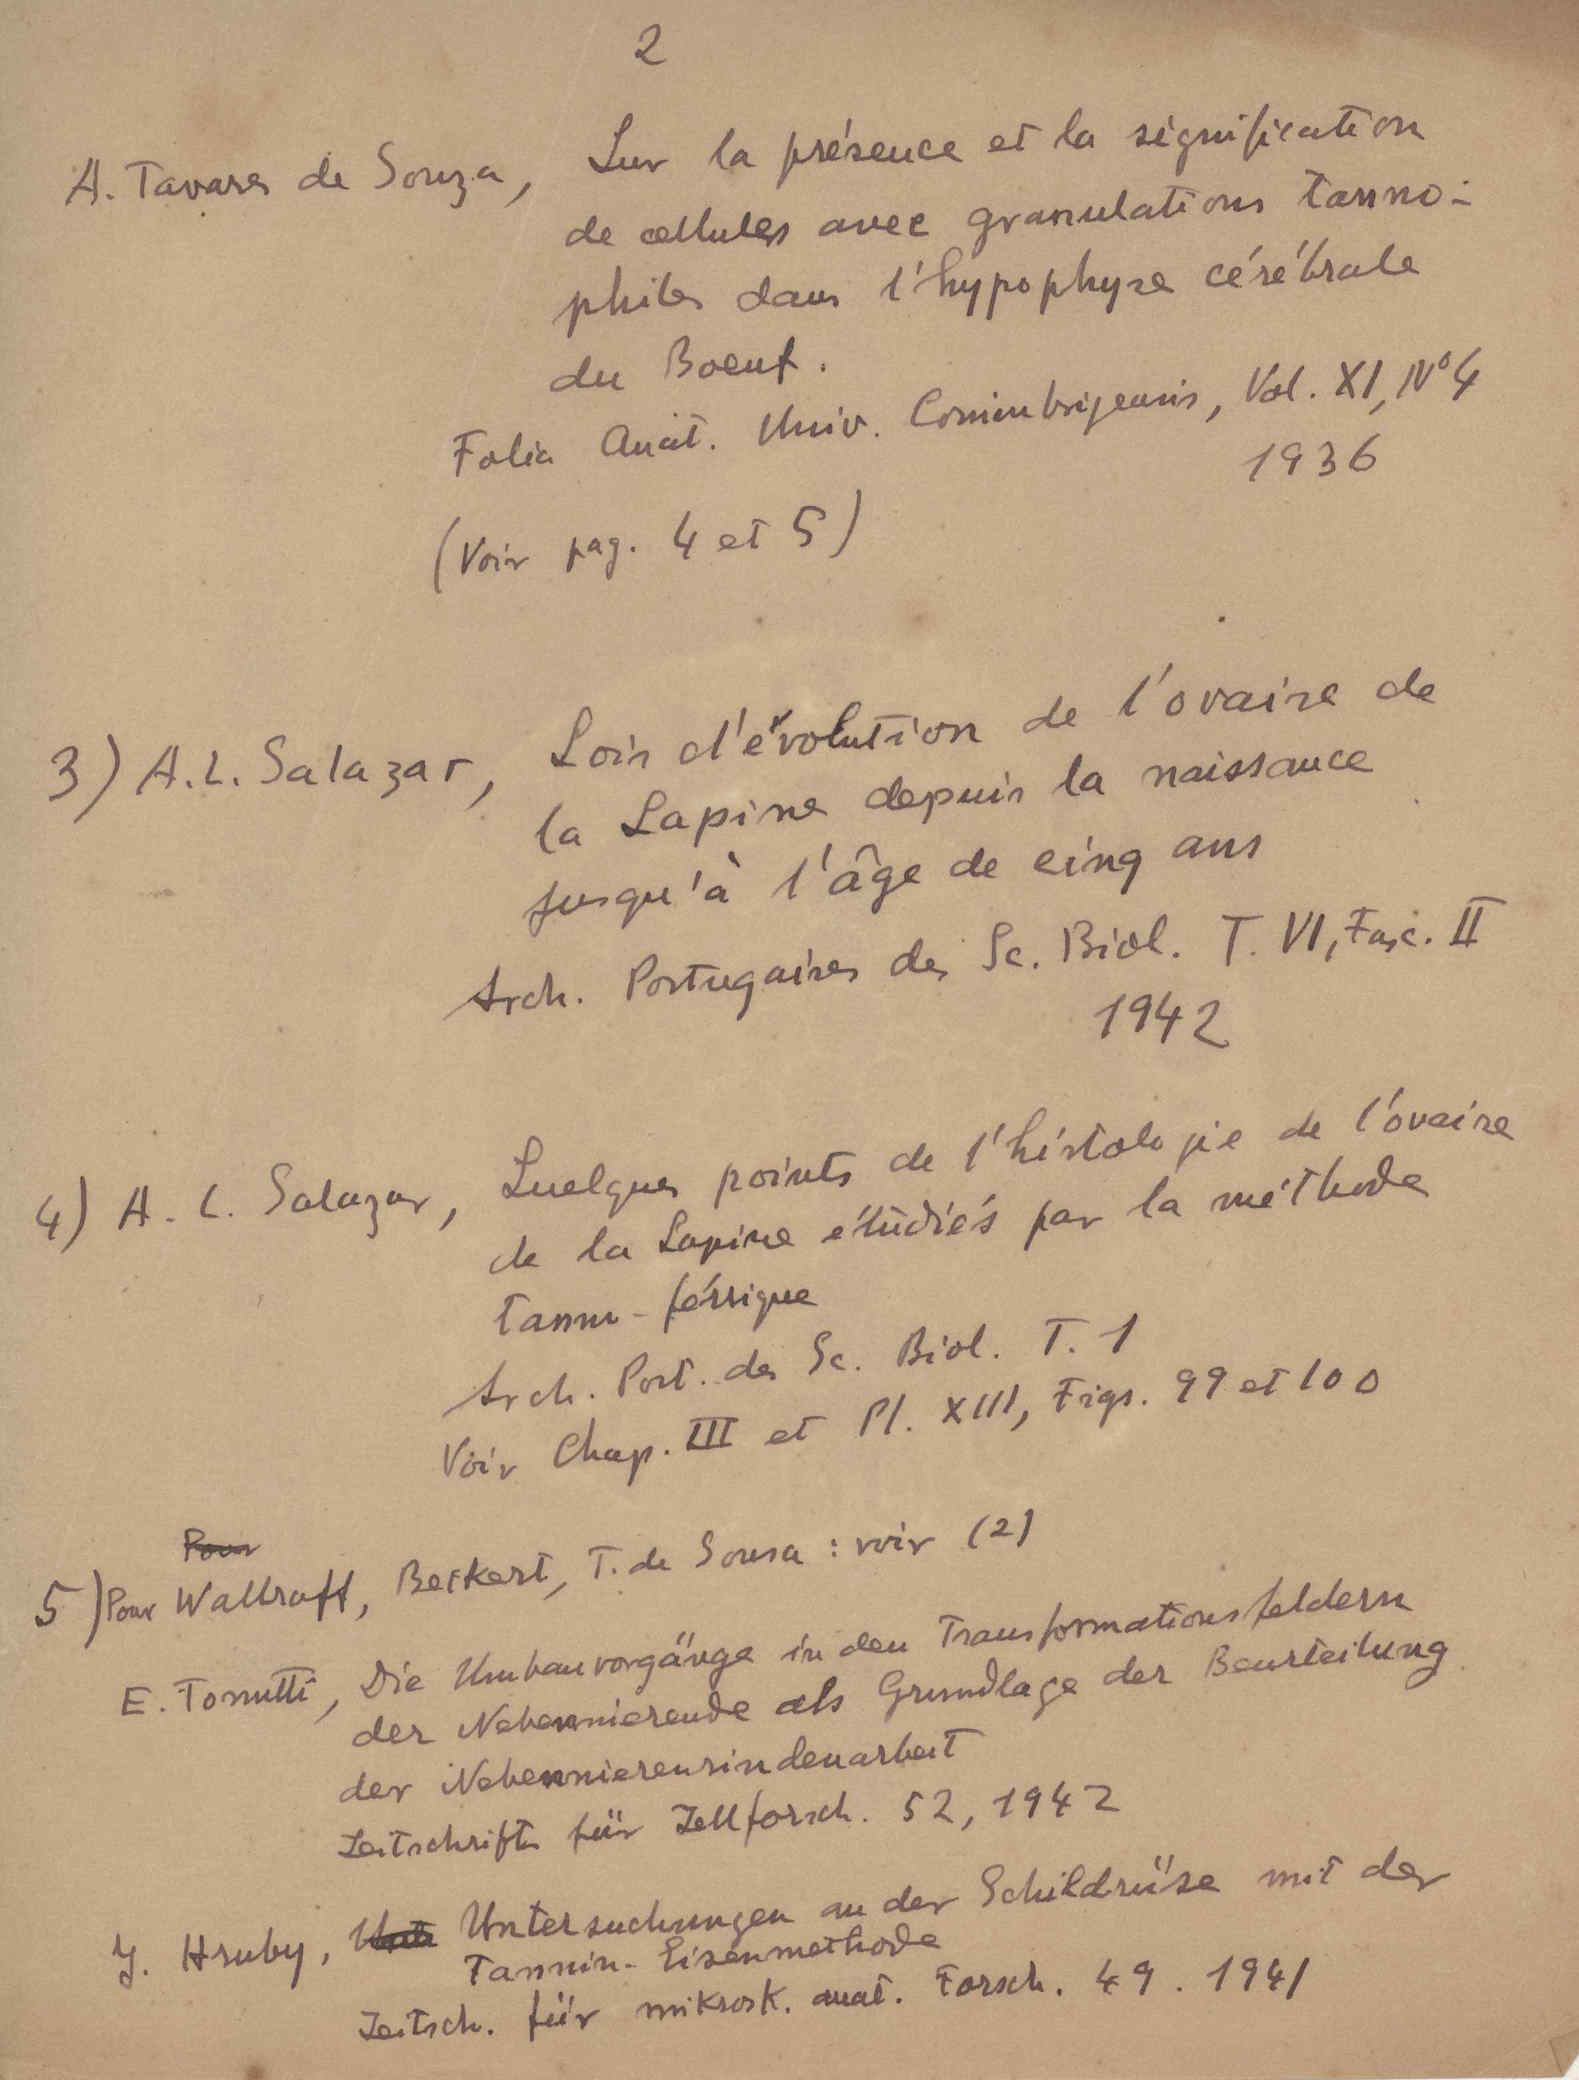 2
A. Tavares de Souza, Sur la présence et la signification
de cellules avec granulations tanno-
philes dans l'hypophyse cérébrale
du Boeuf.
Folia Anat. Univ. Conimbrigensis, Vol. XI, Nº 4
1936
(Voir pag. 4 et 5)
3) A. L. Salazar, Lois d'évolution de l'ovaire de
la Lapine depuis la naissance
jusqu'à l'âge de cinq ans
Arch. Portugaises des Sc. Biol. T. VI, Fasc. II
1942
4) A. L. Salazar, Quelques points de l'histologie de l'ovaire
de la Lapine étudiés par la méthode
tanno-férrique
Arch. Port. des Sc. Biol. T. 1
Voir Chap. III et Pl. XIII, Figs. 99 et 100
Pour
5) Pour Wallraff, Beckert, T. de Sousa : voir (2)
E. Tonutti, Die Umbauvorgänge in den Transformationsfeldern
der Nebennierende als Grundlage der Beurteilung
der Nebennierenrindenarbeit
Zeitschrift für Zellforsch. 52, 1942
J. Hruby, Unt Untersuchungen an der Schildrüse mit der
Tannin-Eisenmethode
Zeitsch. für mikrosk. anat. Forsch. 49. 1941